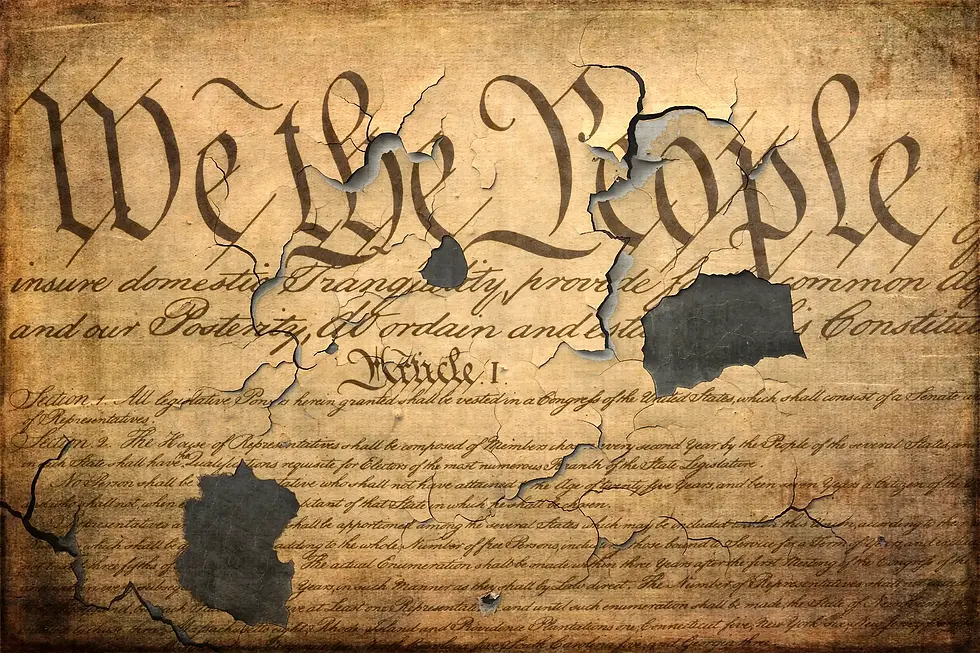 We the People
insure domestic Tranquility, provide f ommon
and our Posterity, do ordain and esta s Constitu
Article. I.
Section. 1. All legislative Powers herein granted shall be vested in a Congress of the United States, which shall consist of a Senate
of Representatives.
Section. 2. The House of Representatives shall be composed of Members chosen every second Year by the People of the several States,
in each State shall have the Qualifications requisite for Electors of the most numerous Branch of the State Legislature.
No Person shall be tative who shall not have attained to the Age of twenty five Years, and been seven Years a Citizen of the
who shall not, when bitant of that State in which he shall be chosen.
Representatives a shall be apportioned among the several States which may be included within this Union, according to the
which shall be adding to the whole Number of free Persons, those bound to Service for a Term of
three fifths of The actual Enumeration shall be made within three Years after the first Meeting of the Congress of
Years, in such Manner as they shall by Law direct. The Number of Representatives shall not
ve at Least one Representative; and until such enumeration shall be made, the State of New
eight, Rhode Island and Providence Plantations one, Connecticut five, New York six, New Jersey
five, South Carolina five, and Georgia three.